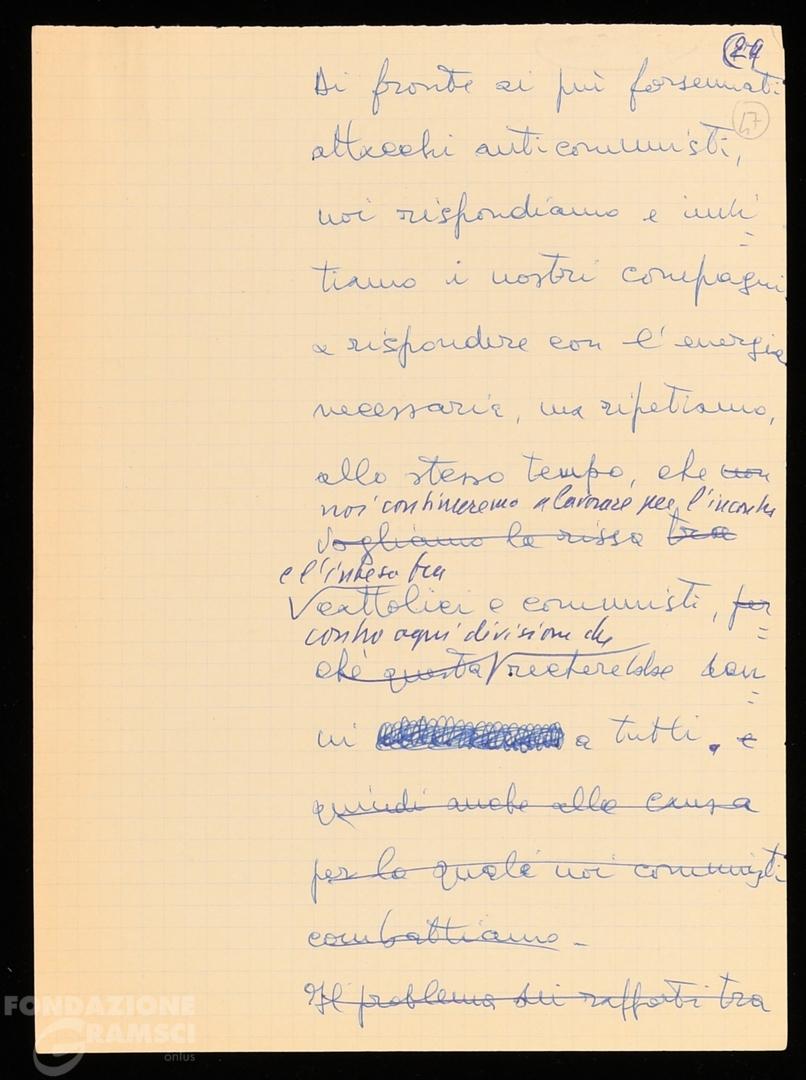 (24
47
Di fronte ai più forsennati
attacchi anticomunisti,
noi rispondiamo e invi=
tiamo i nostri compagni
a rispondere con l'energia
necessaria, ma ripetiamo,
allo stesso tempo, che non
noi continueremo a lavorare per l'incontro
vogliamo la rissa tra
e l'intesa tra
cattolici e comunisti, per=
contro ogni divisione che
ché questa recherebbe dan=
ni a tutti. e
quindi anche alla causa
per la quale noi comunisti
combattiamo.
Il problema dei rapporti tra
FONDAZIONE
GRAMSCI
onlus